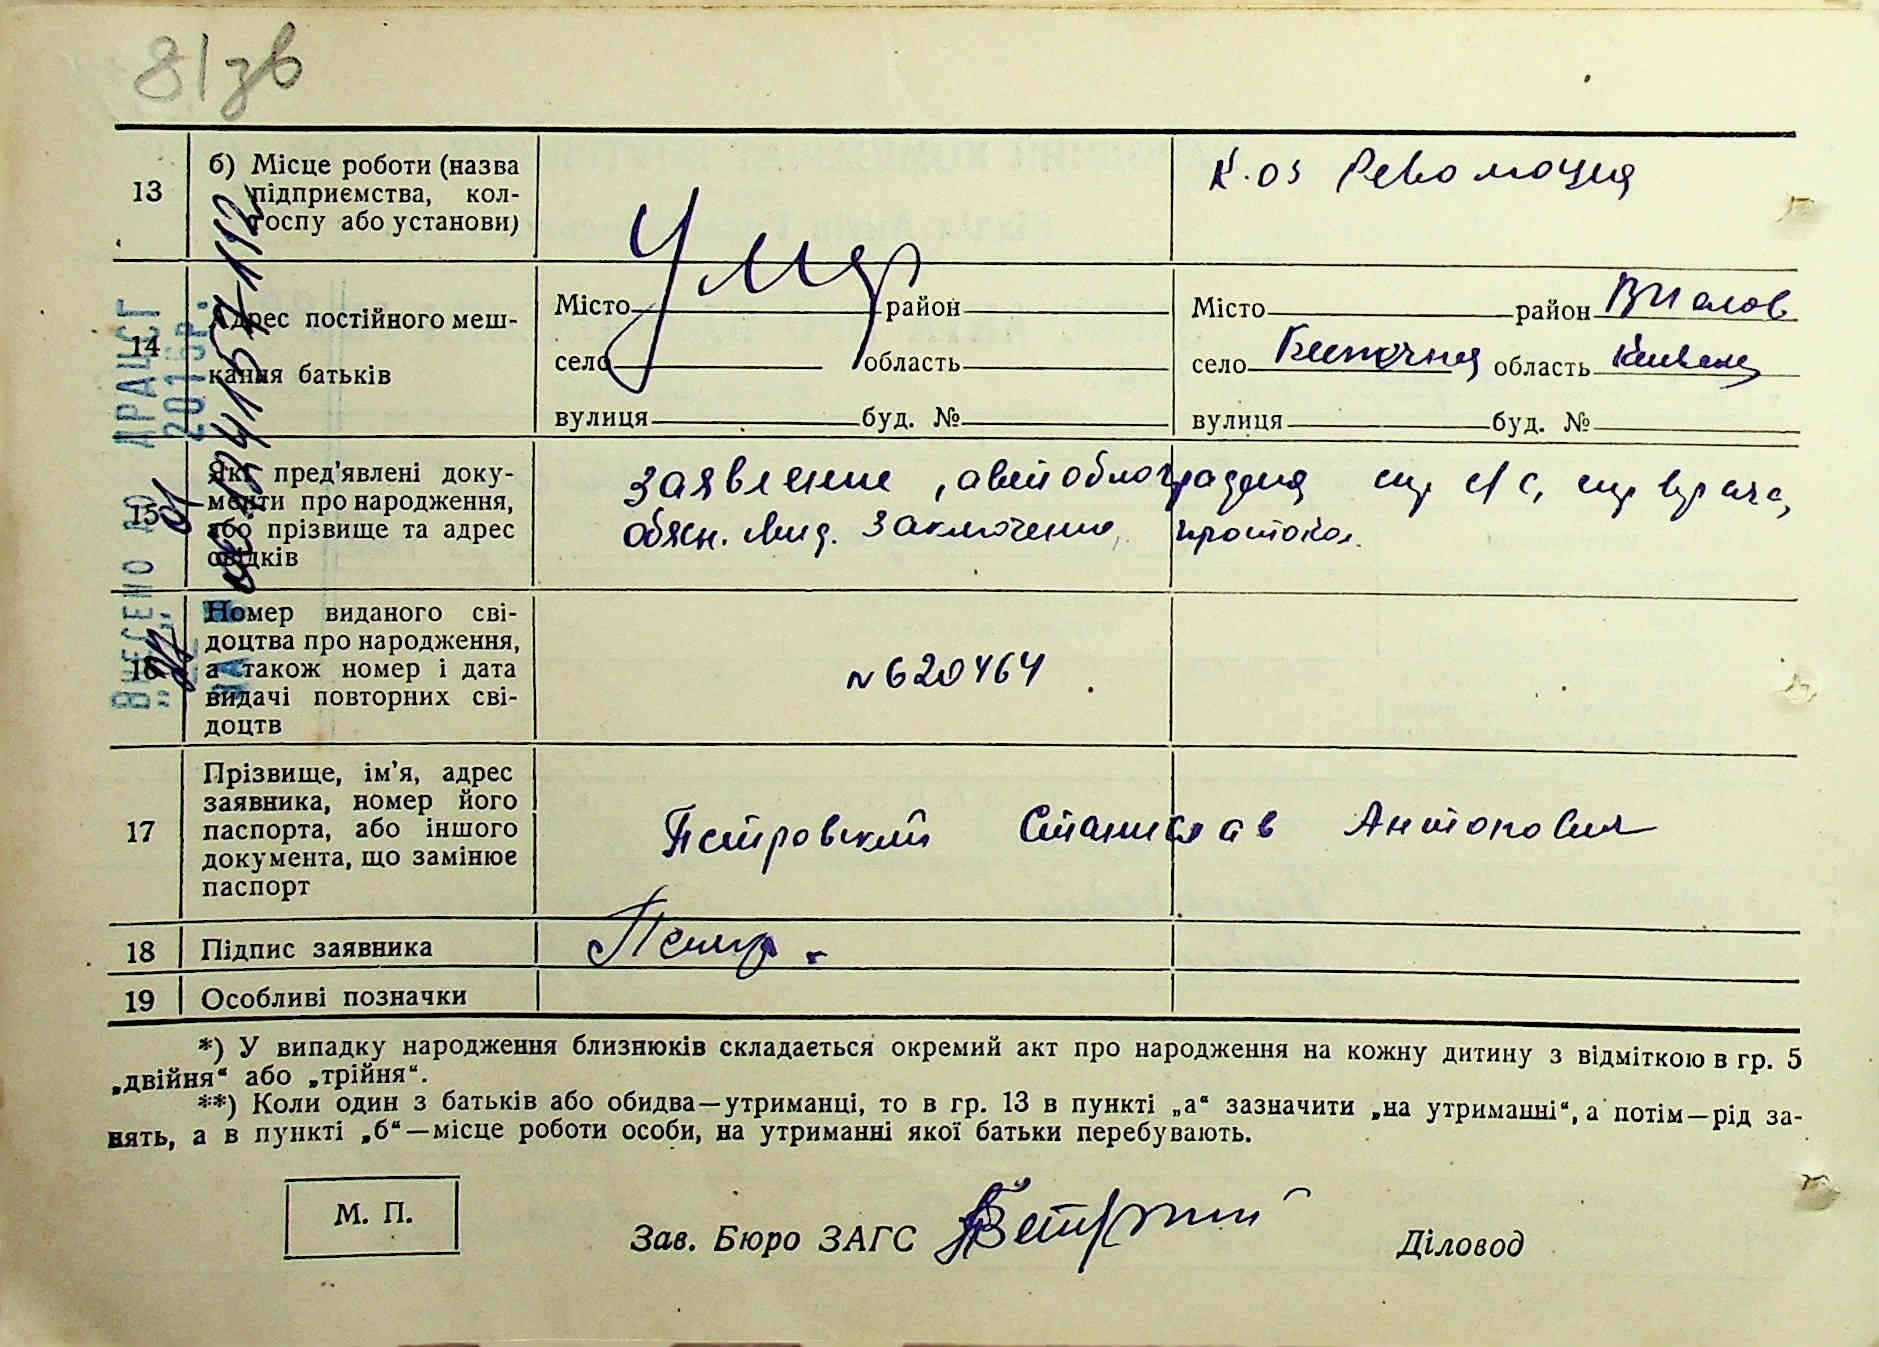 81зв
13
б) Місце роботи (назва
підприємства, кол-
госпу або установи)
К-оз Революция
Умер
14
Адрес постійного меш-
кання батьків
Місто район
село область
вулиця буд. №
Місто район
село область
вулиця буд. №
15
Які пред'явлені доку-
менти про народження,
або прізвище та адрес
свідків
заявление, автобиография спр с/с, спр врача,
объясн. свид. заключение, протокол.
16
Номер виданого сві-
доцтва про народження,
а також номер і дата
видачі повторних сві-
доцтв
N 620464
17
Прізвище, ім'я, адрес
заявника, номер його
паспорта, або іншого
документа, що замінює
паспорт
Петровский Станислав Антонович
18
Підпис заявника
Петр.
19
Особливі позначки
*) У випадку народження близнюків складається окремий акт про народження на кожну дитину з відміткою в гр. 5
„двійня“ або „трійня“.
**) Коли один з батьків або обидва—утриманці, то в гр. 13 в пункті „а“ зазначити „на утриманні“, а потім—рід за-
нять, а в пункті „б“—місце роботи особи, на утриманні якої батьки перебувають.
М. П.
Зав. Бюро ЗАГС
Діловод
ВНЕСЕНО ДО ДРАЦСГ
2015р.